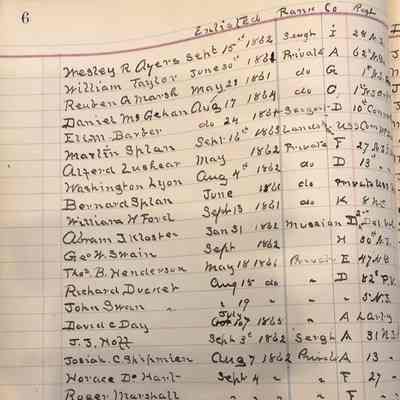 6 Enlisted Rank Co Regt
Wesley R Ayers Sept 15th 1862 Sergt I 24 N.J.
William Taylor June 30th 1861 Private A 62d
Reuben A Marsh May 28 1861 do G 1st
Daniel McGehan Aug 17 1864 do G 1st
Eli M. Barber do 24 1864 Sergt D 10th Conn
Martin Splan Sept. 16th 1863 Lands
Alfred May 1862 Private F 27 N.J.
Washington Lyon Aug 4th 1862 do D 13th
Bernard Splan June 1861 do Private
William H Ford Sept. 13 1861 do K 8 N.J.
Abram J Kloster Jan 31 1862 Musician D 2nd
Geo W. Swain Sept 1862 H 30th N.J.
Thos. B. Henderson May 18 1861 Private E
Richard Ducket Aug 15 do " D 82d P.V.
John Swan " 19 " " 5 N.J.
David C Day July 7 1863 " A
J. J. Hoff Sept 3d 1862 Sergt A 31 N.J.
Josiah C Shipman Aug 7 1862 Private A 13 "
Horace De Hart Sept 4 " " F 27 "
Roger Marshall " " "